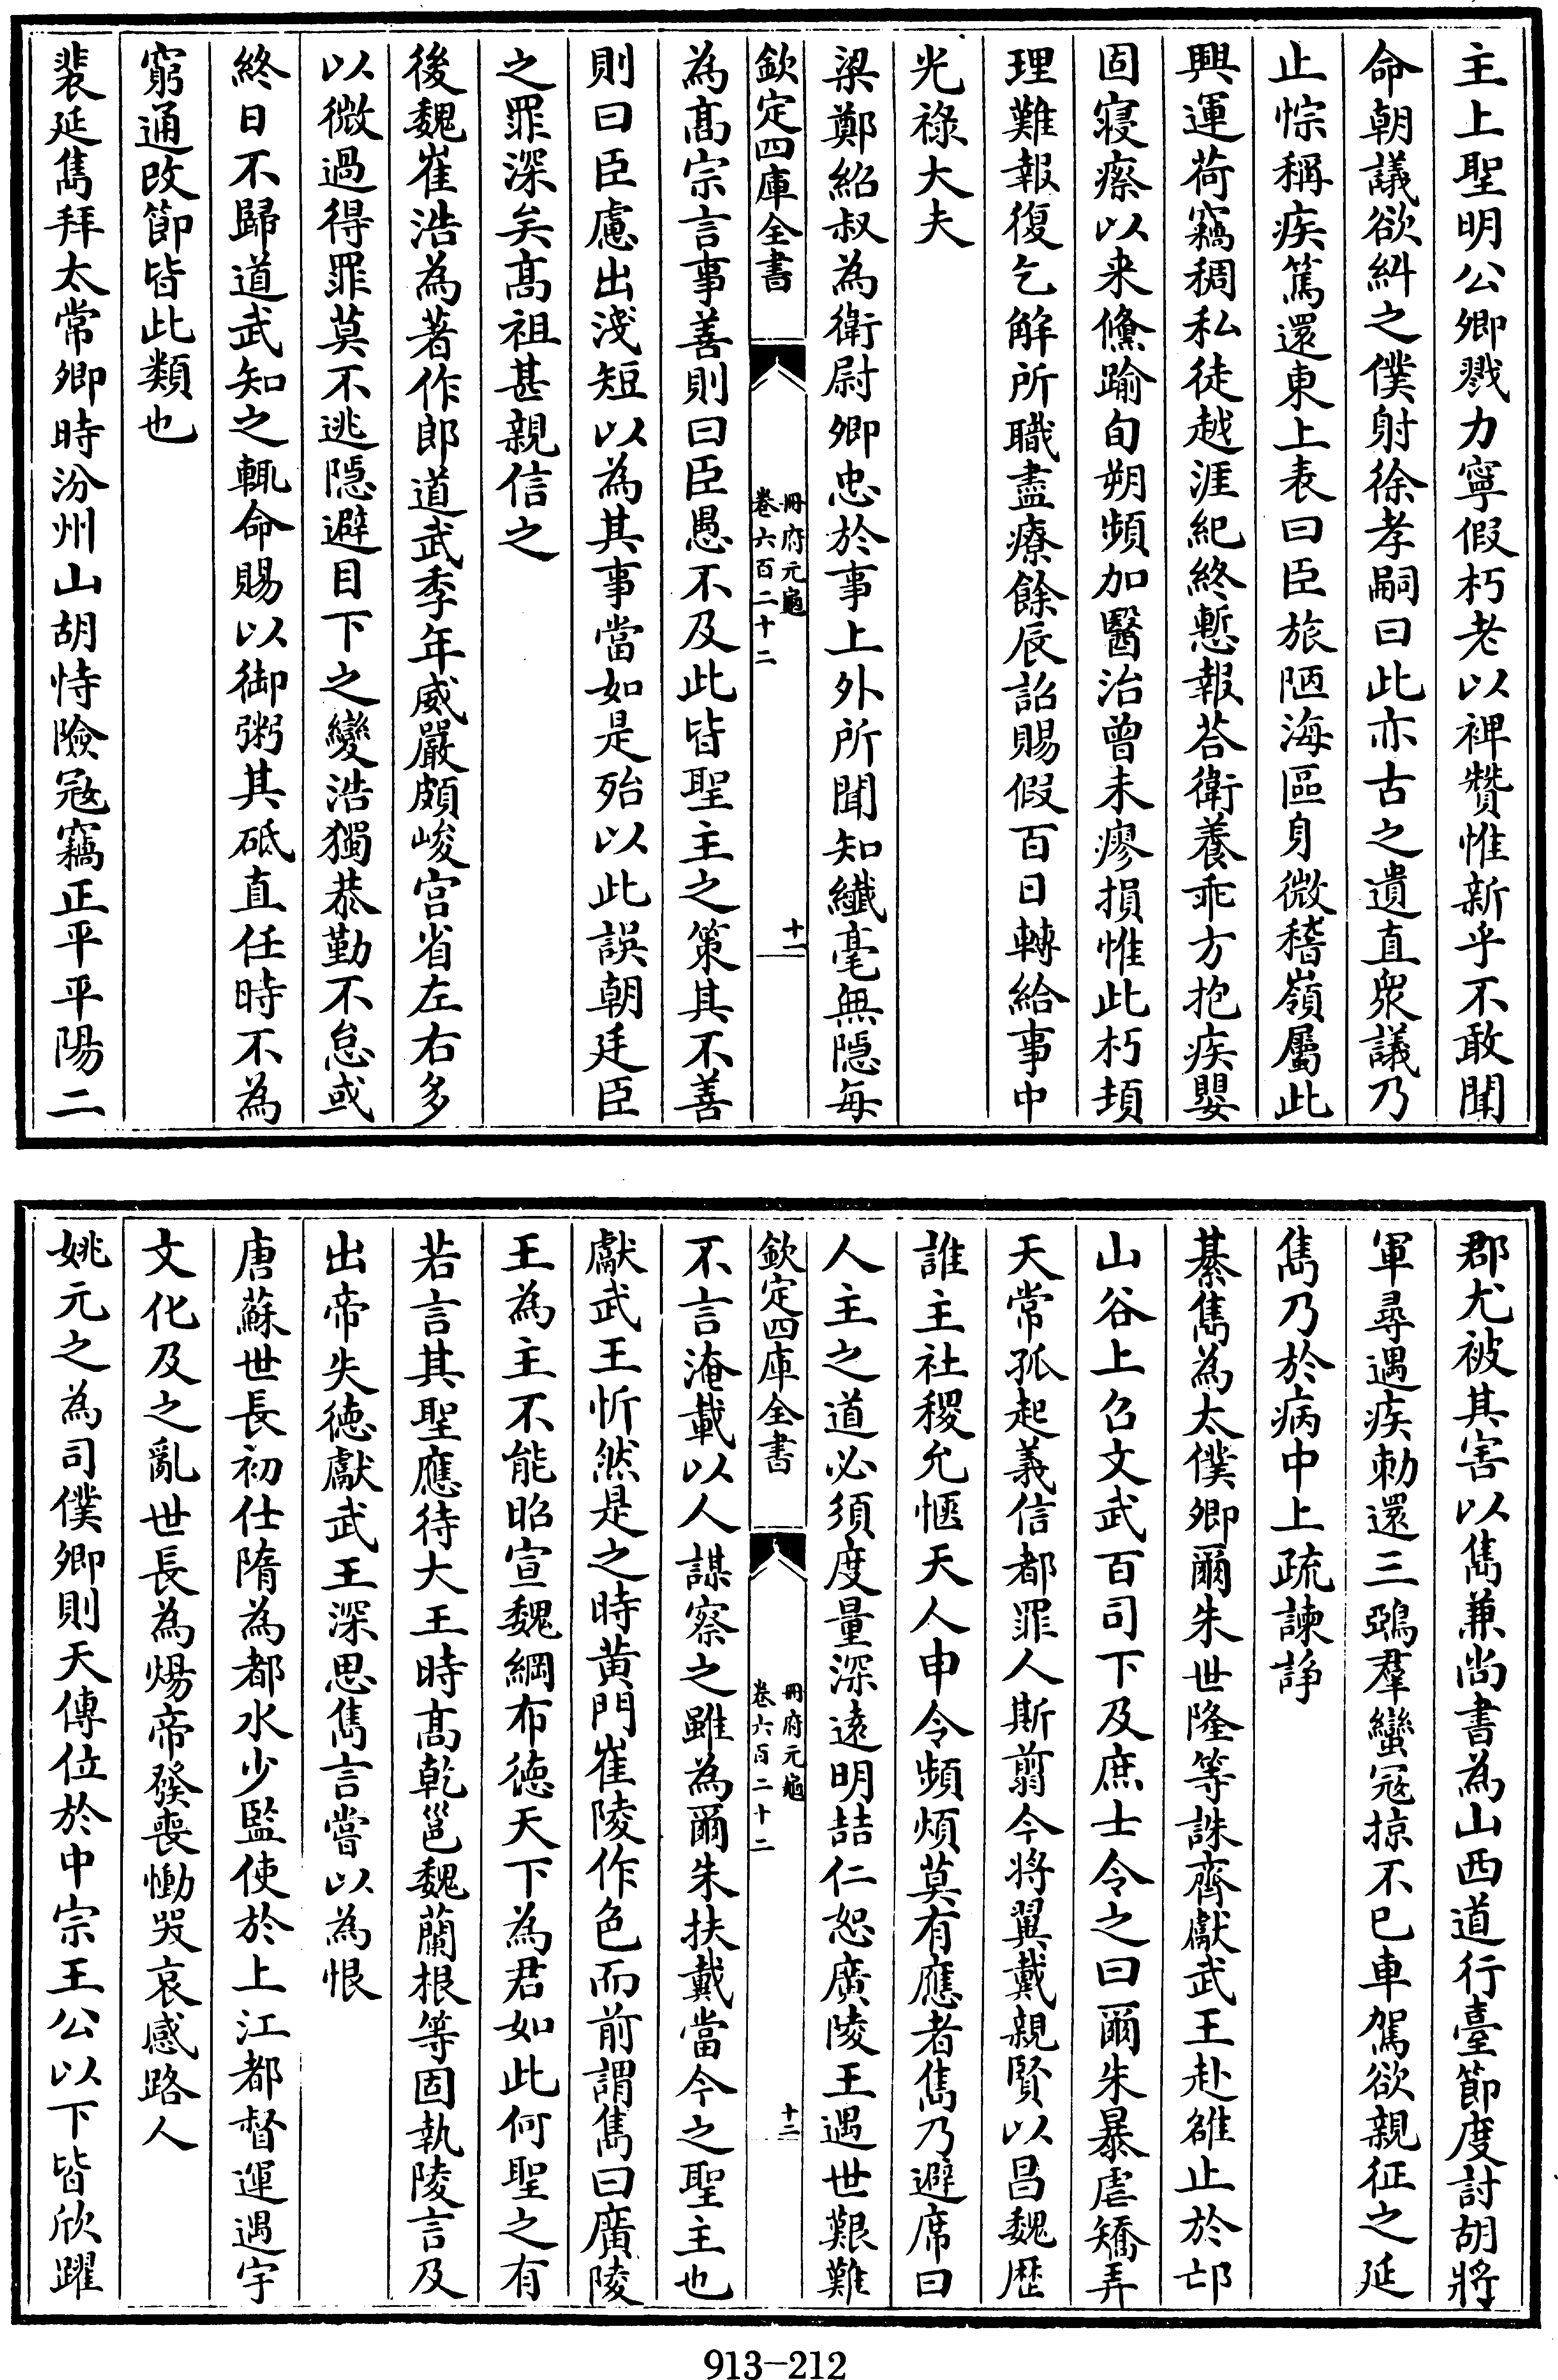 主上聖明公卿戮力寧假朽老以裨贊惟新乎不敢聞
命朝議欲糾之僕射徐孝嗣曰此亦古之遺直衆議乃
止悰稱疾篤還東上表曰臣旅陋海區身微稽嶺屬此
興運荷竊稠私徒越涯紀終慙報荅衛養乖方抱疾嬰
固寢瘵以来儵踰旬朔頻加醫治曾未瘳損惟此朽頓
理難報復乞解所職盡療餘辰詔賜假百日轉給事中
光祿大夫
梁鄭紹叔為衛尉卿忠於事上外所聞知纖毫無隱每
欽定四庫全書
冊府元龜
卷六百二十二
十一
為髙宗言事善則曰臣愚不及此皆聖主之策其不善
則曰臣慮出淺短以為其事當如是殆以此誤朝廷臣
之罪深矣髙祖甚親信之
後魏崔浩為著作郎道武季年威嚴頗峻宫省左右多
以微過得罪莫不逃隱避目下之變浩獨恭勤不怠或
終日不歸道武知之輒命賜以御粥其砥直任時不為
窮通改節皆此類也
裴延雋拜太常卿時汾州山胡恃險宼竊正平平陽二
郡尤被其害以雋兼尚書為山西道行臺節度討胡將
軍尋遇疾勅還三鵶羣蠻冦掠不已車駕欲親征之延
雋乃於病中上疏諫諍
綦雋為太僕卿爾朱世隆等誅齊獻武王赴雒止於邙
山谷上召文武百司下及庶士令之曰爾朱暴虐矯弄
天常孤起義信都罪人斯翦今將翼戴親賢以昌魏歴
誰主社稷允愜天人申令頻煩莫有應者雋乃避席曰
人主之道必須度量深遠明喆仁恕廣陵王遇世艱難
欽定四庫全書
冊府元龜
卷六百二十二
十二
不言淹載以人謀察之雖為爾朱扶戴當今之聖主也
獻武王忻然是之時黄門崔陵作色而前謂雋曰廣陵
王為主不能昭宣魏綱布徳天下為君如此何聖之有
若言其聖應待大王時髙乾邕魏蘭根等固執陵言及
出帝失徳獻武王深思雋言嘗以為恨
唐蘇世長初仕隋為都水少監使於上江都督運遇宇
文化及之亂世長為煬帝發喪慟哭哀感路人
姚元之為司僕卿則天傳位於中宗王公以下皆欣躍
913-212